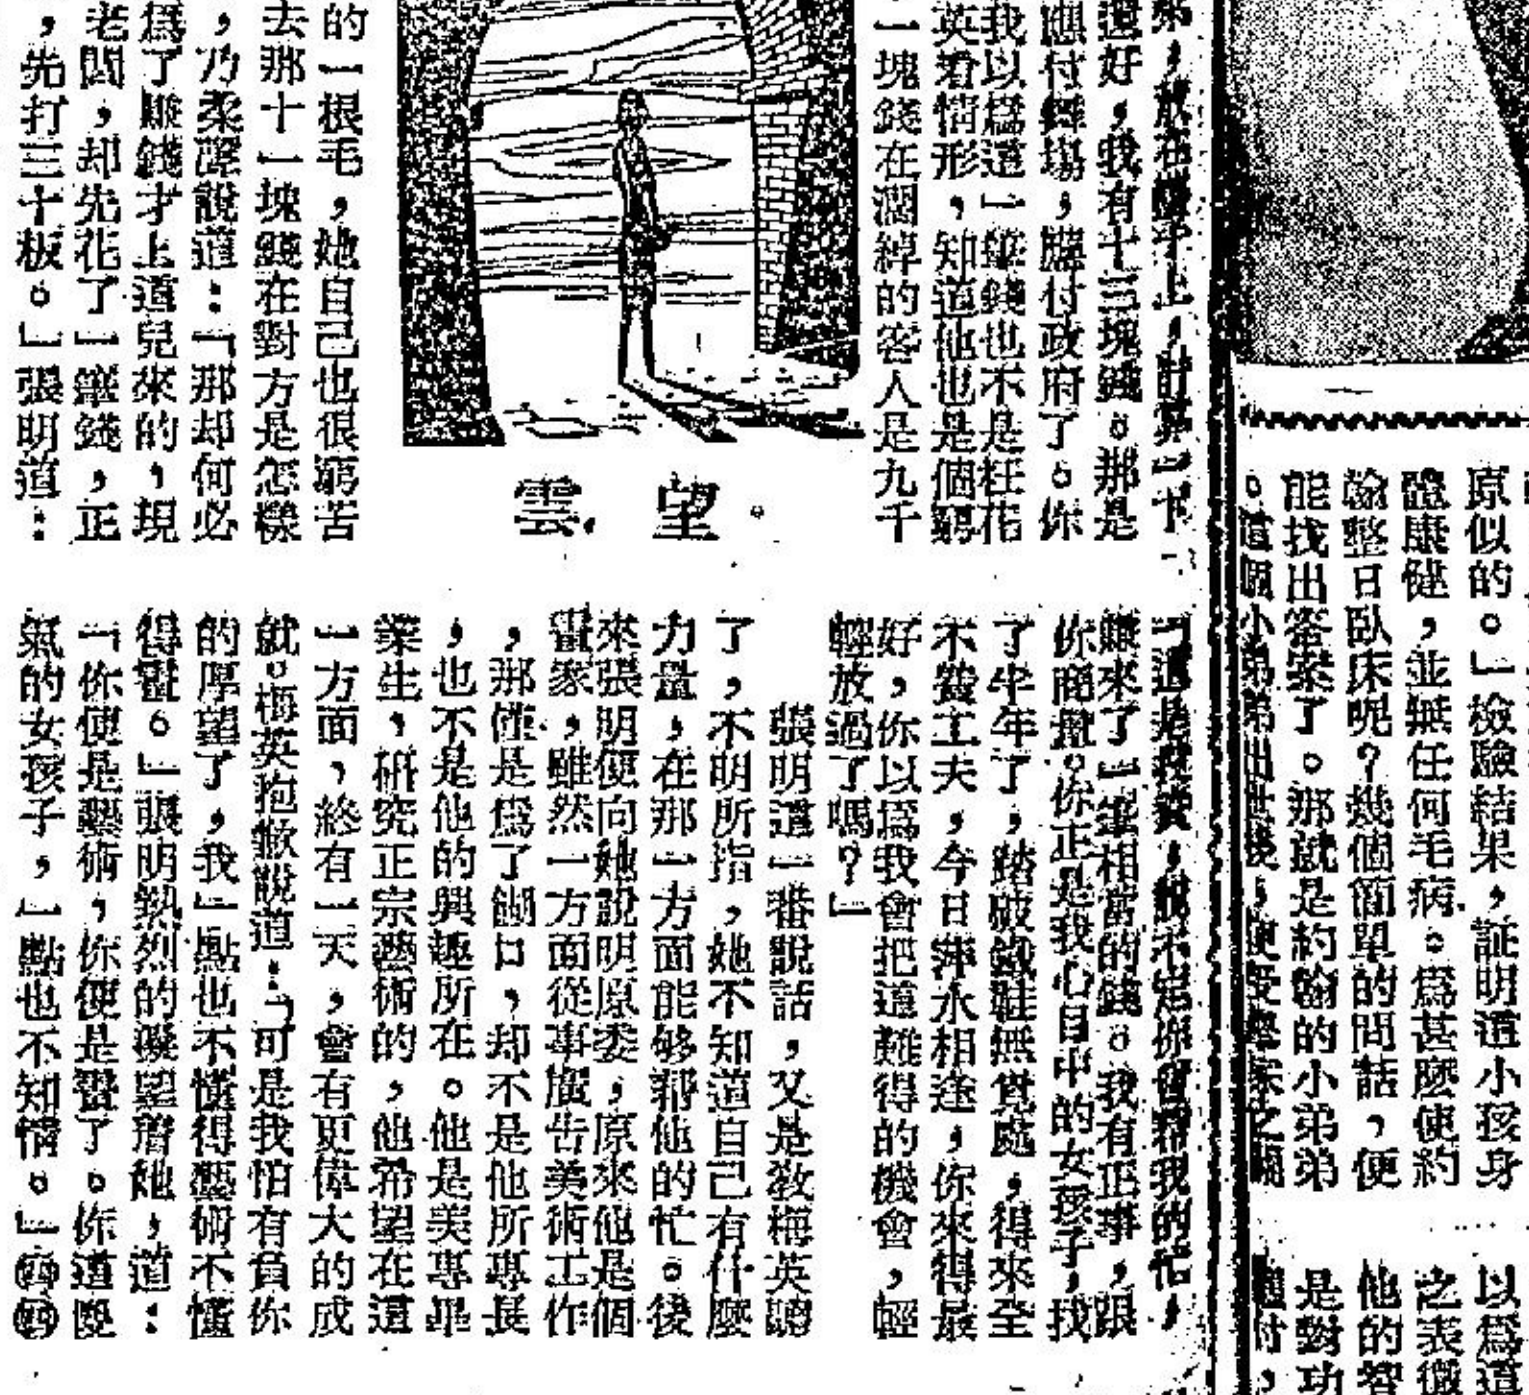 弟，放在檯子上，計算一下
還好，我有十三塊錢。那是
應付舞場，應付政府了。你
我以爲這一筆錢也不是枉花
英看情形，知道他也是個窮
一塊錢在濶綽的客人是九千
望雲
的一根毛，她自己也很窮苦
去那十一塊錢在對方是怎樣
，乃柔聲說道：「那却何必
爲了賺錢才上道兒來的，現
老闆，却先花了一筆錢，正
，先打三十板。」張明道：
「這是我賺，說不定你會帮我的忙，
賺來了一筆相當的錢。我有正事，跟
你商量。你正是我心目中的女孩子，我
了半年了，踏破鐵鞋無覓處，得來全
不費工夫，今日萍水相逢，你來得最
好，你以爲我會把這難得的機會，輕
輕放過了嗎？」
張明這一番說話，又是敎梅英聽
了，不明所指，她不知道自己有什麼
力量，在那一方面能够帮他的忙。後
來張明便向她說明原委，原來他是個
畫家，雖然一方面從事廣告美術工作
，那僅是爲了餬口，却不是他所專長
，也不是他的興趣所在。他是美專畢
業生，研究正宗藝術的，他希望在這
一方面，終有一天，會有更偉大的成
就。梅英抱歉說道：「可是我怕有負你
的厚望了，我一點也不懂得藝術不懂
得畫。」張明熱烈的凝望着她，道：
「你便是藝術，你便是畫了。你這麼
氣的女孩子，一點也不知情。」
原似的。」檢驗結果，証明這小孩身
體康健，並無任何毛病。爲甚麼使約
翰整日臥床呢？幾個簡單的問話，便
能找出答案了。那就是約翰的小弟弟
。這個小弟弟出世後，便受舉家之
以爲這
之表徵
他的智
是對功
付，